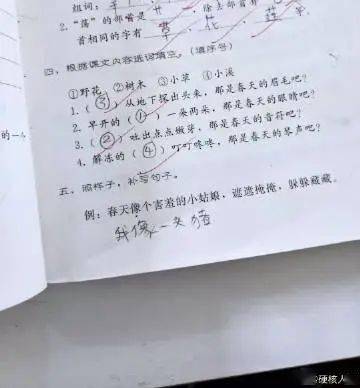 组词:
2."荡"的部首是 艹 除去部首
首相同的字有 草 花
四、根据课文内容选词填空。(填序号)
①野花 ②树木 ③小草 ④小溪
1.(③)从地下探出头来,那是春天的眉毛吧?
2.早开的(①)一朵两朵,那是春天的眼睛吧?
3.(②)吐出点点嫩芽,那是春天的音符吧?
4.解冻的(④)叮叮咚咚,那是春天的琴声吧?
的一
五、照样子,补写句子。
例:春天像个害羞的小姑娘,遮遮掩掩,躲躲藏藏。
我像一头猪
硬核人